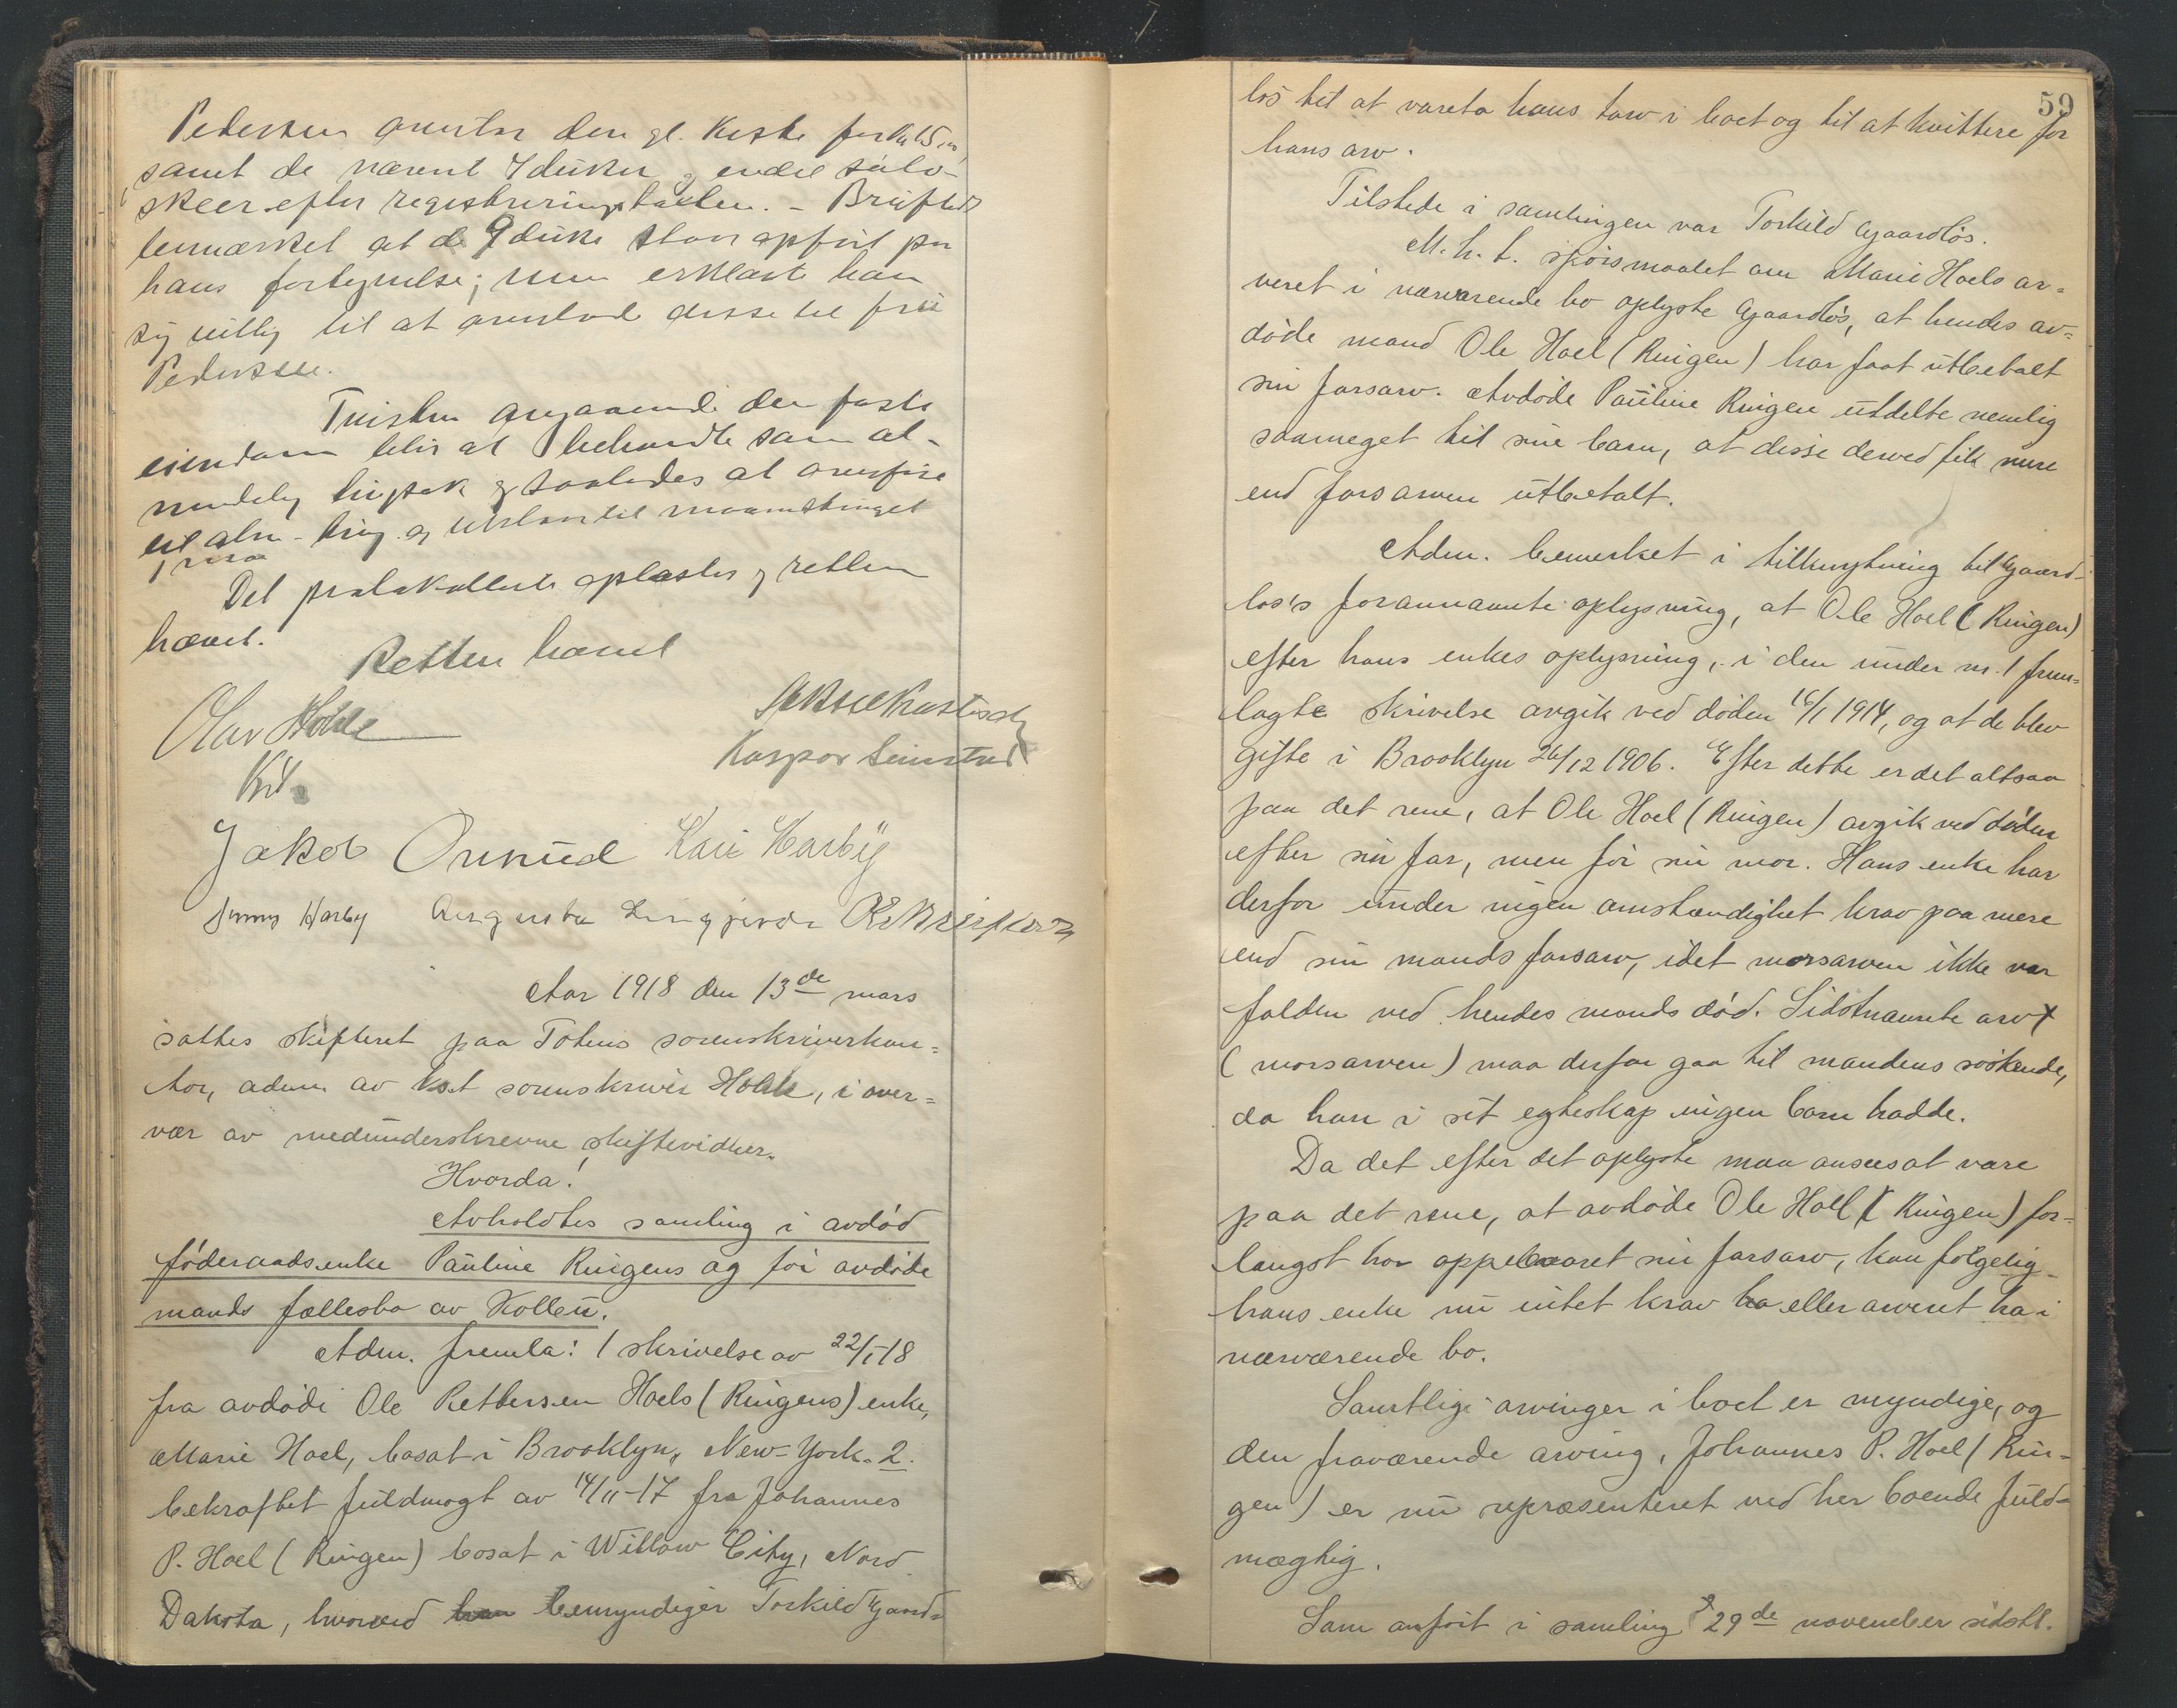 Pedersen den gl. kiste for kr 15
samt de nævnt 7 duker og endel sølv-
skeer efter registreringstaksten. –
bemærket at de 9 duke staar opført paa
hans fortegnelse; men erklærte han
sig villig til at overlade disse til fru
Pedersen.
Tvisten angaaende den faste
eiendom blir at behandle som al-
mindelig tvistsak og saaledes at
til alm. ting og
Det protokollerte oplæstes og retten
hævet.
Retten hævet
Olav Holck
Kst.
Jakob Onsrud Kari Harby
Jenny Harby Augusta
Aar 1918 den 13de mars
sattes skifteret paa Totens sorenskriverkon=
tor, adm. av kst sorenskriver Holck, i over=
vær av medunderskrevne skiftevidner.
Hvorda!
Avholdtes samling i avdød
føderaadsenke Pauline Ringens og før avdøde
mands fællesbo av Kolbu.
Adm. fremla: 1 skrivelse av 22/1-18
fra avdøde Ole Pettersen Hoels (Ringens) enke,
Marie Hoel, bosat i Brooklyn, New-York. 2.
bekræftet fuldmagt av 14/11-17 fra Johannes
P. Hoel (Ringen) bosat i Willow City, Nord
Dakota, hvorved han bemyndiger Torkild Gaard=
59
løs til at vareta hans tarv i boet og til at kvittere for
hans arv.
Tilstede i samlingen var Torkild Gaardløs.
M.h.t. spørsmaalet om Marie Hoels ar=
veret i nærværende bo oplyste Gaardløs, at hendes av=
døde mand Ole Hoel (Ringen) har faat utbetalt
sin farsarv. Avdøde Pauline Ringen utdelte nemlig
saameget til sine barn, at disse derved fik mere
end farsarven utbetalt.
Adm. bemerket i tilknytning til Gaard-
løs's forannævnte oplysning, at Ole Hoel (Ringen)
efter hans enkes oplysning, i den under nr. 1 frem=
lagte skrivelse avgik ved døden 16/1 1914, og at de blev
gifte i Brooklyn 26/12 1906. Efter dette er det altsaa
paa det rene, at Ole Hoel (Ringen) avgik ved døden
efter sin far, men før sin mor. Hans enke har
derfor under ingen omstændighet krav paa mere
end sin mands farsarv, idet morsarven ikke var
falden ved hendes mands død. Sidstnævnte arv
(morsarven) maa derfor gaa til mandens søskende,
da han i sit egteskap ingen barn hadde.
Da det efter det oplyste maa ansees at være
paa det rene, at avdøde Ole Hoel (Ringen) for=
længst har oppebaaret sin farsarv, kan følgelig
hans enke nu intet krav ha eller arveret ha i
nærværende bo.
Samtlige arvinger i boet er myndige, og
den fraværende arving, Johannes P. Hoel (Rin=
gen) er nu repræsenteret ved her boende fuld=
mægtig.
Som anført i samling 29de november sidstl.